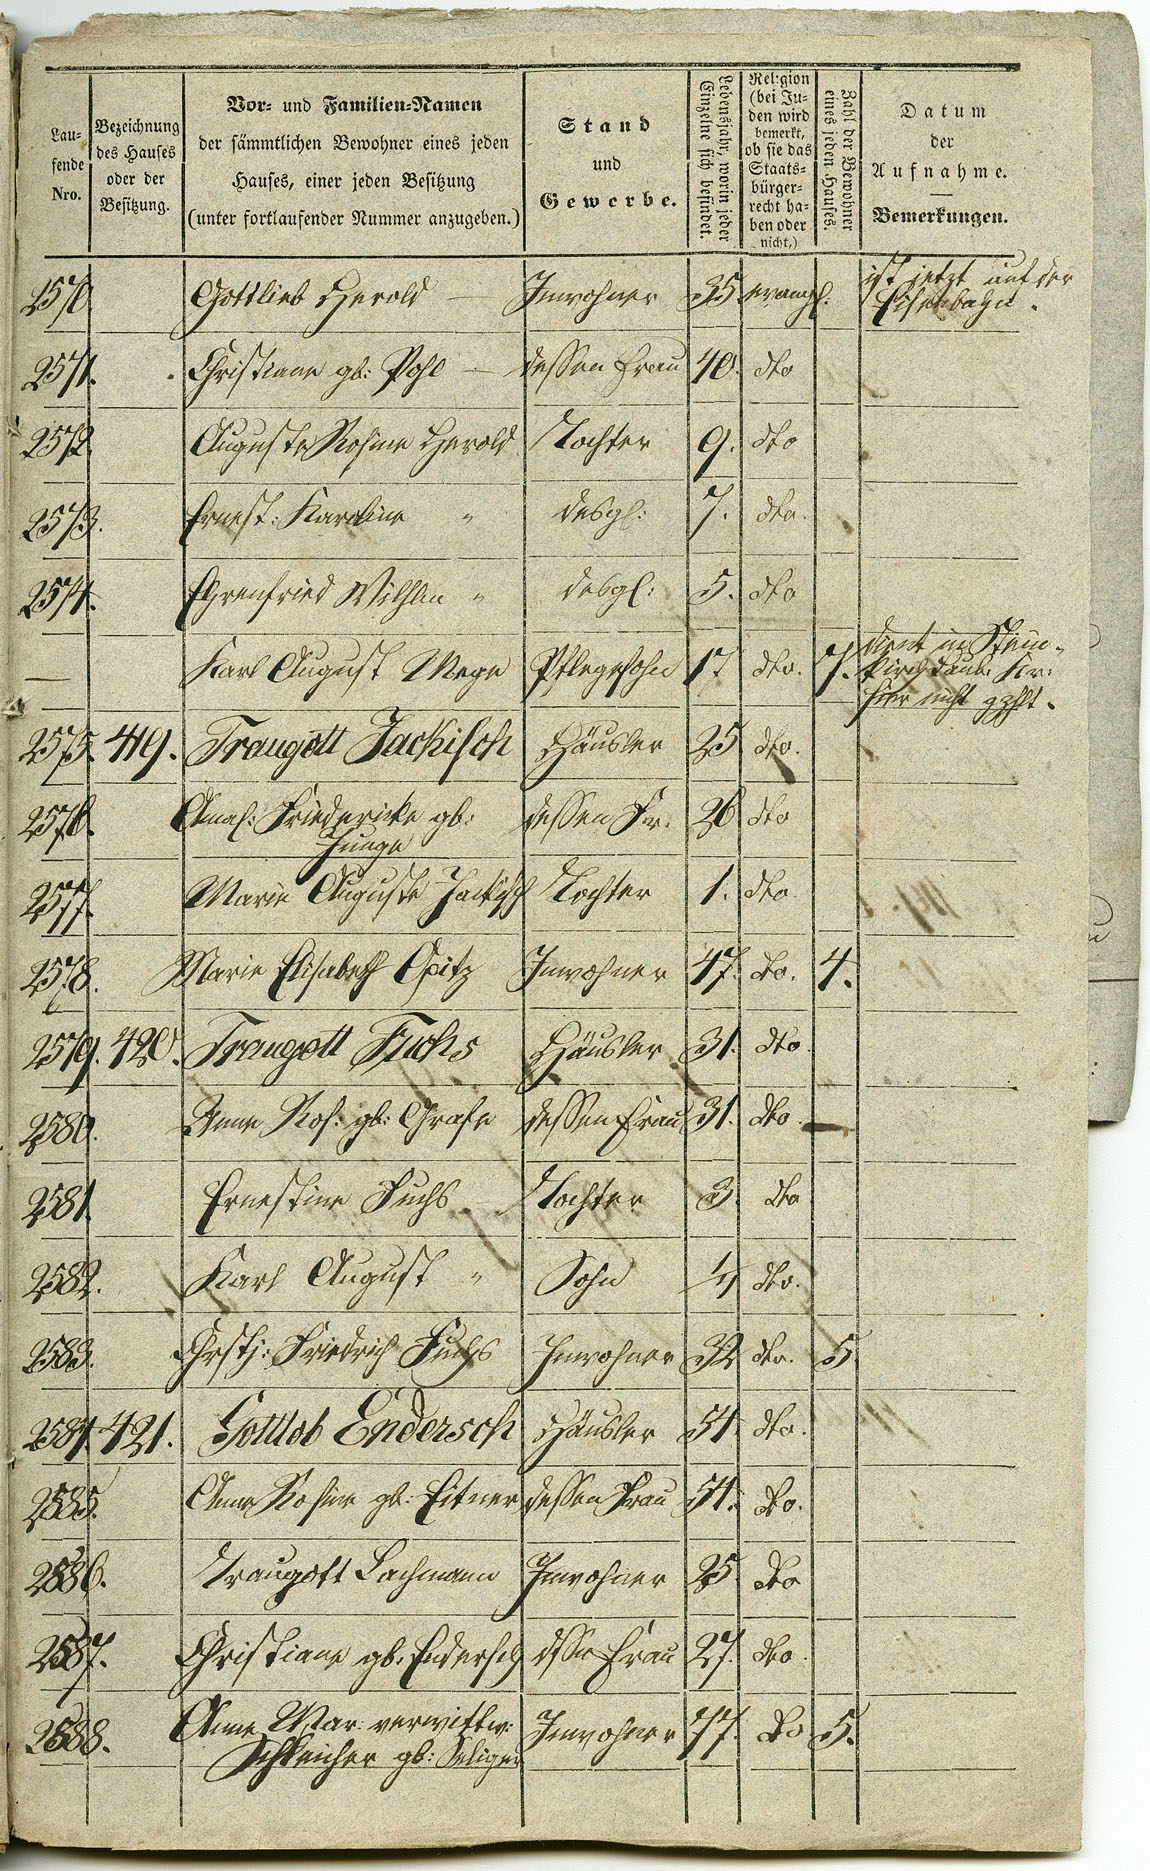 Lau-
fende
Nro.
Bezeichnung
des Hauses
oder der
Besitzung.
Vor- und Familien-Namen
der sämmtlichen Bewohner eines jeden
Hauses, einer jeden Besitzung
(unter fortlaufender Nummer anzugeben.)
Stand
und
Gewerbe.
Lebensjahr, worin jeder
Einzelne sich befindet.
Religion
(bei Ju-
den wird
bemerkt,
ob sie das
Staats-
bürger-
recht ha-
ben oder
nicht.)
Zahl der Bewohner
eines jeden Hauses.
Datum
der
Aufnahme.
Bemerkungen.
2570. Gottlieb Herold — Inwohner 35 evangl. ist jetzt auf der
Eisenbahn.
2571. Christiane gb: Pohl — dessen Frau 40. dto
2572. Auguste Rosine Herold Tochter 9. dto
2573. Ernest: Karoline " desgl: 7. dto.
2574. Ehrenfried Wilhlm " desgl: 5. dto
— Karl August Mege Pflegesohn 17 dto. 7. dient in Stein-
kirch Laub. Kr:
hier nicht gzhlt.
2575. 419. Traugott Jackisch Häusler 25 dto.
2576. Amal: Friedericke gb: dessen Fr. 26 dto
Junge
2577. Marie Auguste Jackisch Tochter 1. dto
2578. Marie Elisabeth Opitz Inwohner 47. dto. 4.
2579. 420. Traugott Fuchs Häusler 31. dto.
2580. Anne Ros: gb: Grafe dessen Frau 31. dto.
2581. Ernestine Fuchs Tochter 3. dto
2582. Karl August " Sohn dto.
2583. Chrstj: Friedrich Fuchs Inwohner 32 dto. 5.
2584. 421. Gottlob Endersch Häusler 54. dto.
2585. Anne Rosine gb: Eitner dessen Frau 54. dto.
2586. Traugott Lachmann Inwohner 25 dto
2587. Christiane gb. Endersch dssn Frau 27. dto.
2588. Anne Mar. verwittw: Inwohner 77. dto 5.
Schleicher gb: Seliger